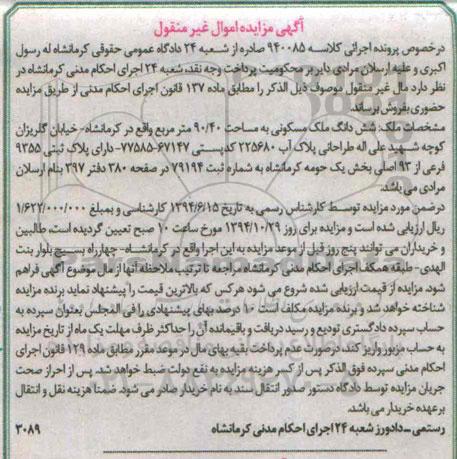 آگهی مزایده اموال غیر منقول
درخصوص پرونده اجرائی کلاسه ۹۴۰۰۸۵ صادره از شعبه ۲۴ دادگاه عمومی حقوقی کرمانشاه له رسول
اکبری و علیه ارسلان مرادی دایر بر محکومیت پرداخت وجه نقد، شعبه ۲۴ اجرای احکام مدنی کرمانشاه در
نظر دارد مال غیر منقول موصوف ذیل الذکر را مطابق ماده ۱۳۷ قانون اجرای احکام مدنی از طریق مزایده
حضوری بفروش برساند.
مشخصات ملک: شش دانگ ملک مسکونی به مساحت ۹۰/۴۰ متر مربع واقع در کرمانشاه- خیابان گلریزان
کوچه شهید علی اله طراحانی پلاک آب ۲۲۵۶۸۰ کدپستی ۶۷۱۴۷-۷۷۵۸۵ دارای پلاک ثبتی ۹۳۵۵
فرعی از ۹۳ اصلی بخش یک حومه کرمانشاه به شماره ثبت ۷۹۱۹۴ در صفحه ۳۸۰ دفتر ۳۹۷ بنام ارسلان
مرادی می باشد.
درضمن مورد مزایده توسط کارشناس رسمی به تاریخ ۱۳۹۴/۶/۱۵ کارشناسی و بمبلغ ۱/۶۲۲/۰۰۰/۰۰۰
ریال ارزیابی شده است و مزایده برای روز ۱۳۹۴/۱۰/۲۹ مورخ ساعت ۱۰ صبح تعیین گردیده است، طالبین
و خریداران می توانند پنج روز قبل از موعد مزایده به این اجرا واقع در کرمانشاه- چهارراه بسیج بلوار بنت
الهدی- طبقه همکف اجرای احکام مدنی کرمانشاه مراجعه تا ترتیب ملاحظه آنها از مال موضوع آگهی فراهم
شود. مزایده از قیمت ارزیابی شده شروع می شود هرکس که بالاترین قیمت را پیشنهاد نماید برنده مزایده
شناخته خواهد شد و برنده مزایده مکلف است ۱۰ درصد بهای پیشنهادی را فی المجلس بعنوان سپرده به
حساب سپرده دادگستری تودیع و رسید دریافت و باقیمانده آن را حداکثر ظرف مهلت یک ماه از تاریخ مزایده
به حساب مزبور واریز کند، درصورت عدم پرداخت بقیه بهای مال در موعد مقرر مطابق ماده ۱۲۹ قانون اجرای
احکام مدنی سپرده فوق الذکر پس از کسر هزینه مزایده به نفع دولت ضبط خواهد شد. پس از احراز صحت
جریان مزایده توسط دادگاه دستور صدور انتقال سند به نام خریدار صادر می شود. ضمنا هزینه نقل و انتقال
برعهده خریدار می باشد.
رستمی- دادورز شعبه ۲۴ اجرای احکام مدنی کرمانشاه
۳۰۸۹